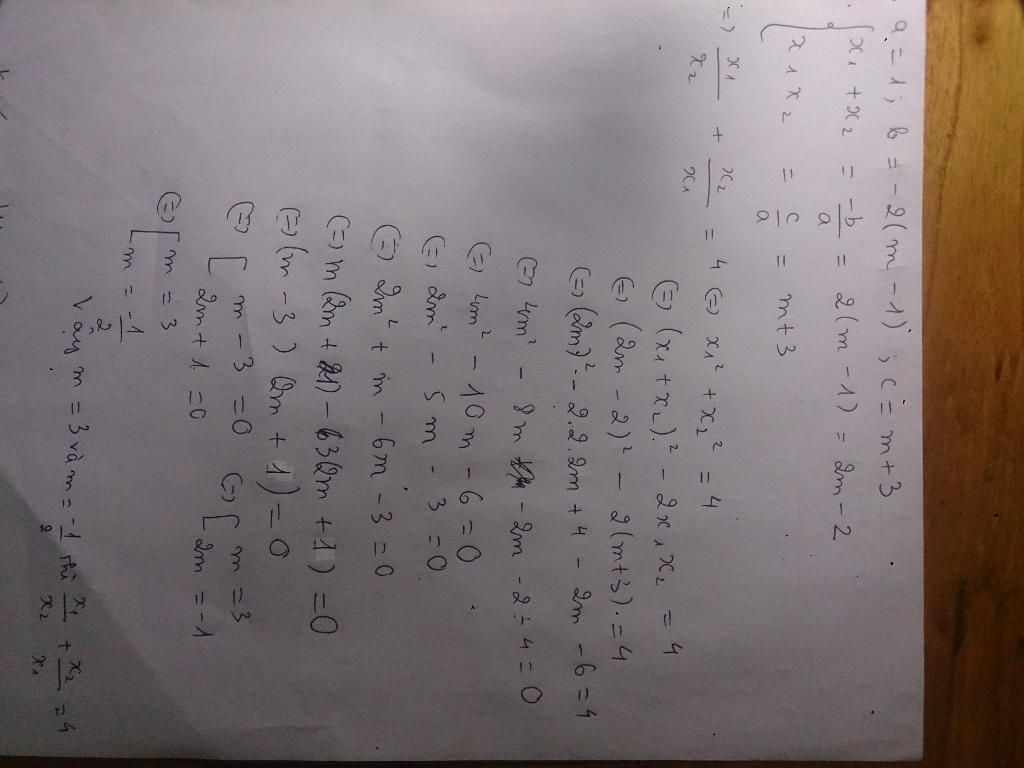 a = 1 ; b = -2(m - 1) ; c = m+3
{ x₁ + x₂ = -b/a = 2(m - 1) = 2m - 2
x₁x₂ = c/a = m+3
=> x₁/x₂ + x₂/x₁ = 4 (=) x₁² + x₂² = 4
(=) (x₁ + x₂)² - 2x₁x₂ = 4
(=) (2m - 2)² - 2(m+3) = 4
(=) (2m)² - 2.2.2m + 4 - 2m - 6 = 4
(=) 4m² - 8m - 2m - 2 - 4 = 0
(=) 4m² - 10m - 6 = 0
(=) 2m² - 5m - 3 = 0
(=) 2m² + m - 6m - 3 = 0
(=) m(2m + 1) - 3(2m + 1) = 0
(=) (m - 3)(2m + 1) = 0
(=) [ m - 3 = 0 (=) [ m = 3
2m + 1 = 0 2m = -1
(=) [ m = 3
m = -1/2
Vậy m = 3 và m = -1/2 thì x₁/x₂ + x₂/x₁ = 4